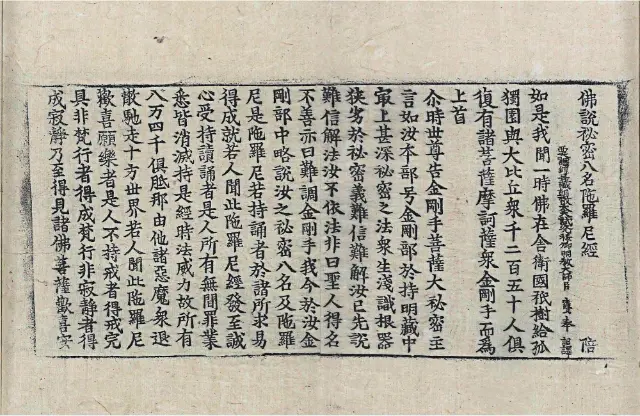 佛說秘密八名陁羅尼經 陪
明教大師臣 奉 詔譯
如是我聞一時佛在舍衛國祇樹給孤
獨園與大比丘衆千二百五十人俱
復有諸菩薩摩訶薩衆金剛手而為
上首
尒時世尊告金剛手菩薩大秘密主
言如汝本部号金剛部於持明藏中
冣上甚深秘密之法衆生淺識根器
狹劣於秘密義難信難解汝已先說
難信解法汝不依法非曰聖人得名
不善亦曰難調金剛手我今於汝金
剛部中略說汝之秘密八名及陁羅
尼是陁羅尼若持誦者於諸所求易
得成就若人聞此陁羅尼經發至誠
心受持讀誦者是人所有無間罪業
悉皆消滅持是經時法威力故所有
八万四千俱胝那由他諸惡魔衆退
散馳走十方世界若人聞此陁羅尼
歡喜願樂者是人不持戒者得戒完
具非梵行者得成梵行非寂靜者得
成寂靜乃至得見諸佛菩薩歡喜安